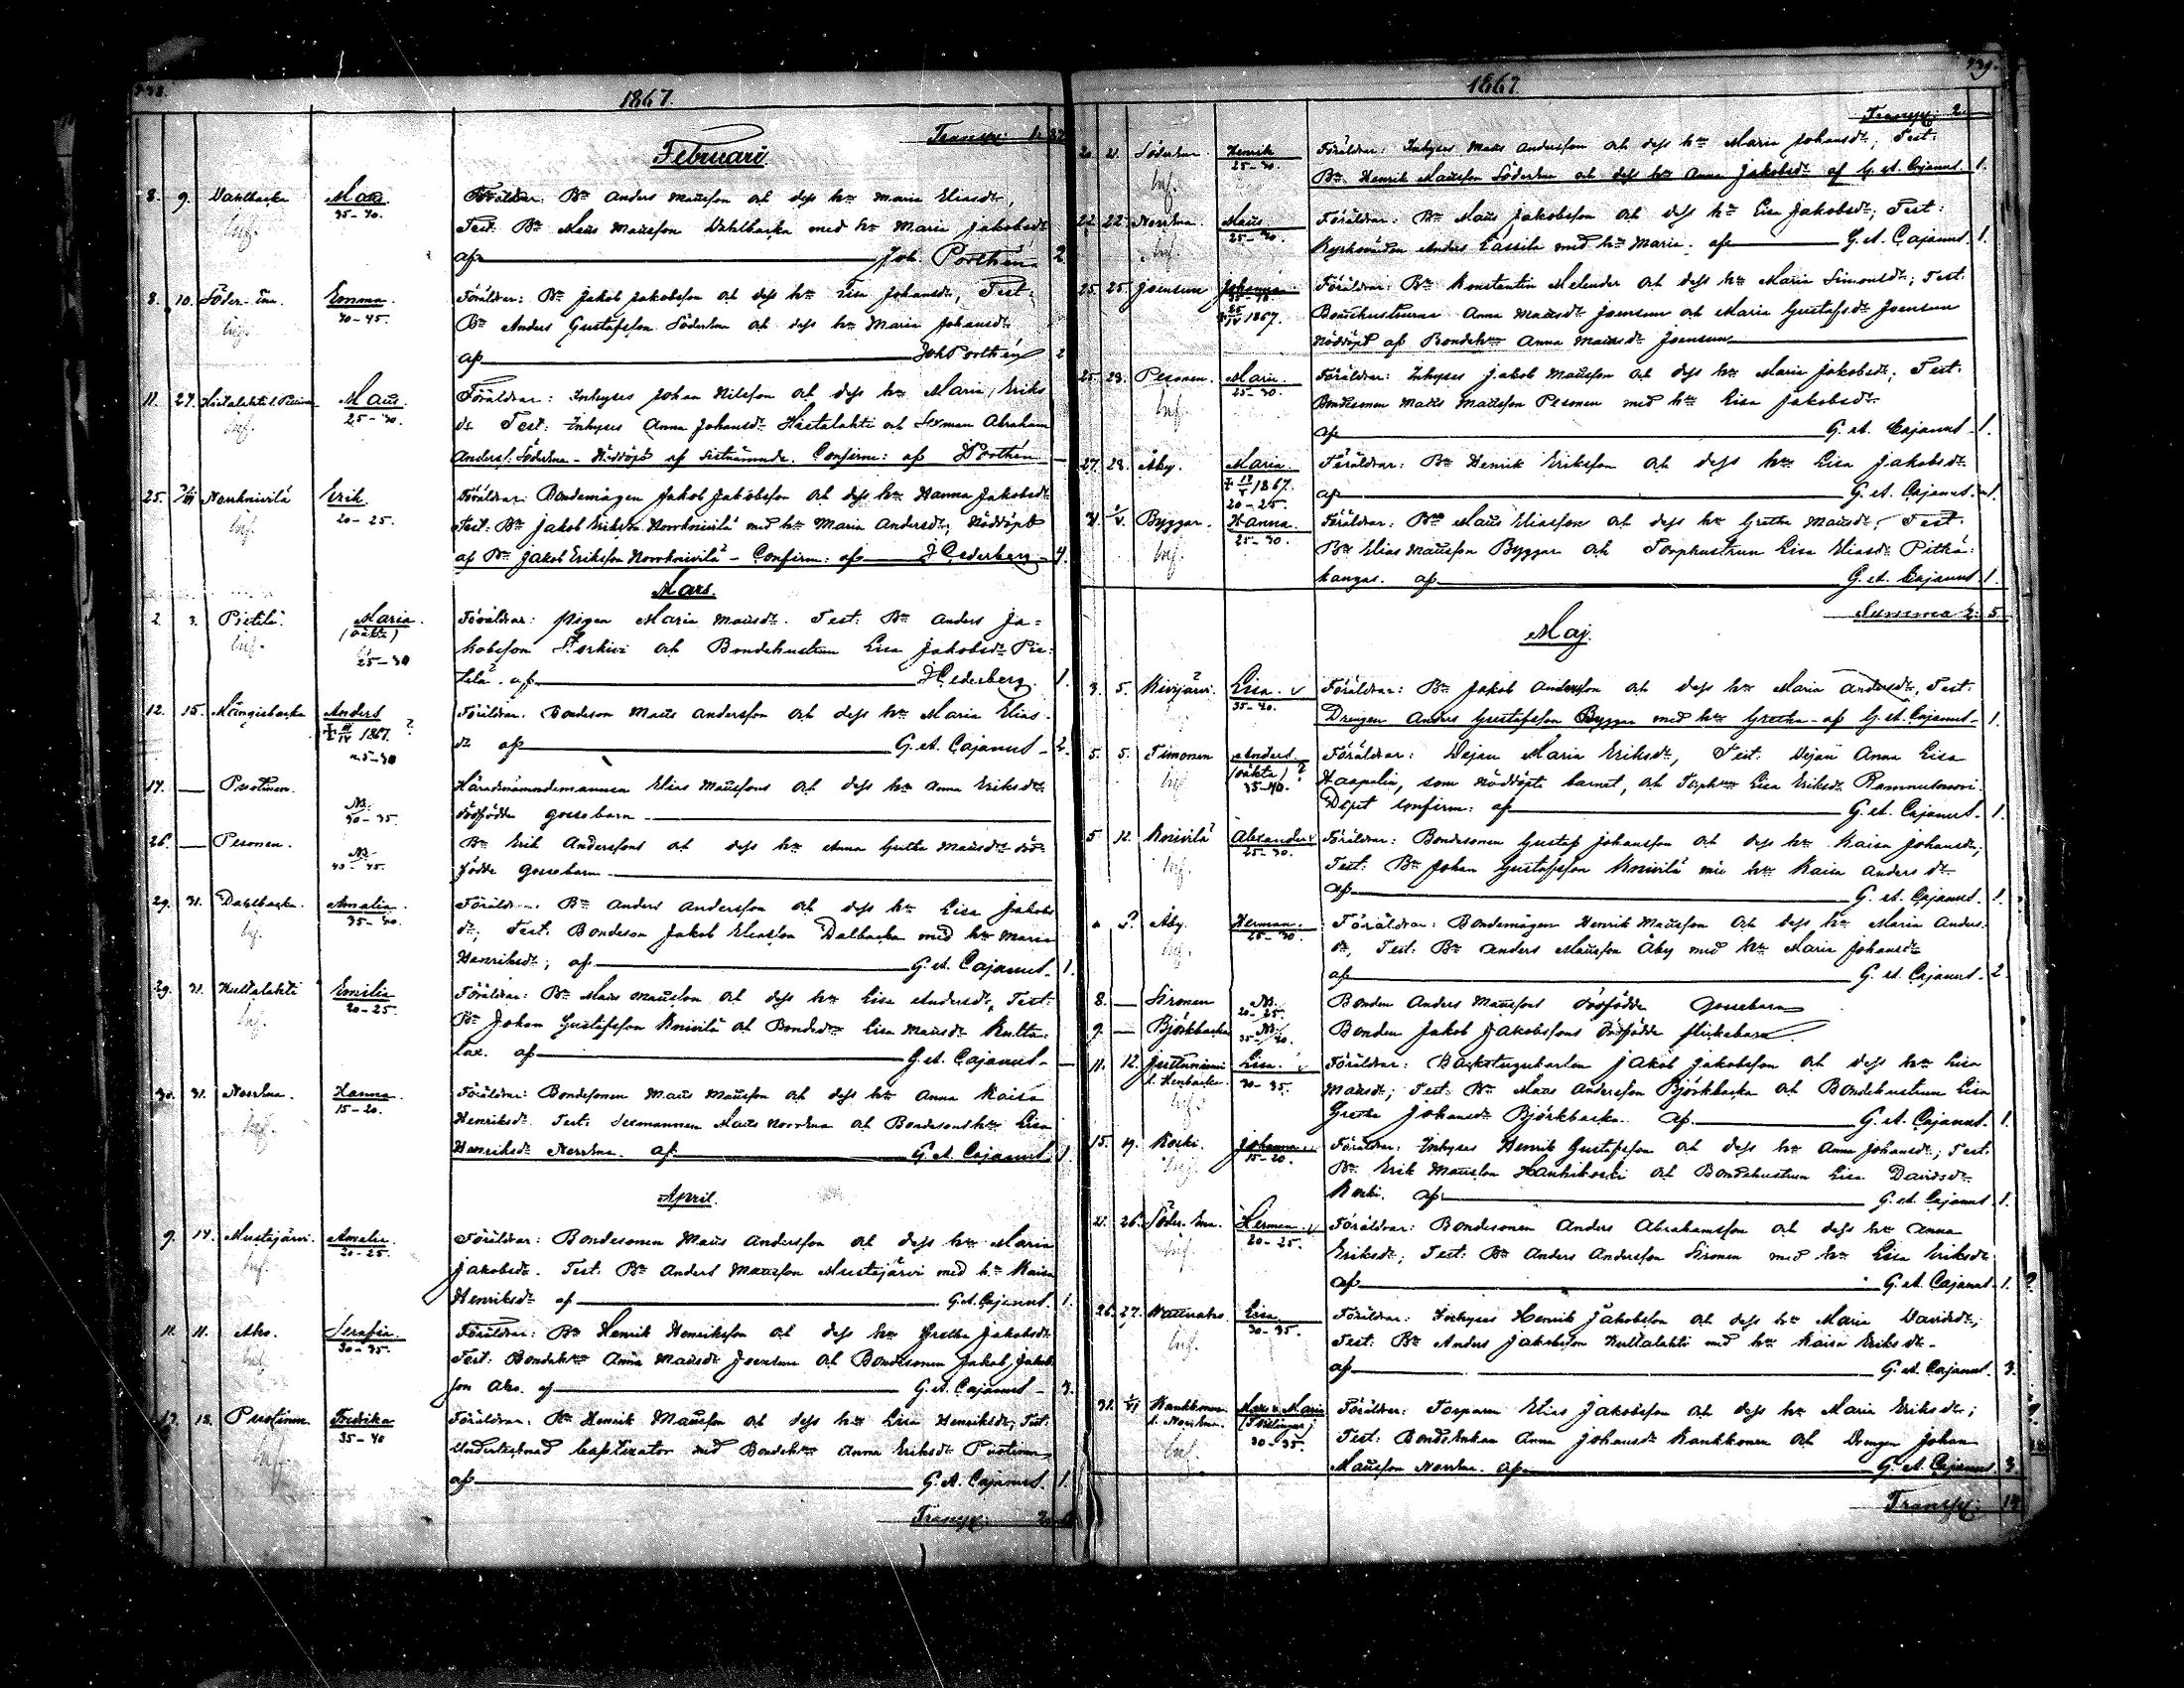 1867.
Transp:
Februari
8. 9. Dahlbacka Maria Föräldrar: Bn Anders Mattsson och dess hu Maria Eliasdr,
Inf. 35-40. Test. Bn Matts Mattsson Dahlbacka med hu Maria Jakobsdr
af Joh. Porthén 2
8. 10. Söder-Una Emma. Föräldrar: Bn Jakob Jakobsson och dess hu Lisa Johansdr, Test:
Inf. 40-45. Bn Anders Gustafsson och dess hu Maria Johansdr
af Joh Porthén 2
11. 24. Matts. Föräldrar: Inhyses Johan Nilsson och dess hu Maria Eriks
Inf. 25-30. dr Test: Inhyses Anna Johansdr Hietalahti och Abraham
Nöddöpt af sistnämnde. Confirm: af JPorthén
25. Norrknivilä Erik. Föräldrar: Bondemågen Jakob Jakobsson och dess hu Hanna Jakobsdr
Inf. 20-25. Test: Bn Jakob Eriksson Norrknivilä med hu Maria Andersdr, Nöddöpt
af Bn Jakob Eriksson Norrknivilä - Confirm: af JCederberg 4.
Mars.
2. 3. Pietilä. Maria. Föräldrar: Pigan Maria Mattsdr. Test: Bn Anders Ja-
Inf. (oäkta) kobsson och Bondehustrun Lisa Jakobsdr Pie-
25-30 tilä. af JCederberg. 1.
12. 15. Långisbacka Anders Föräldrar. Bondeson Matts Andersson och dess hu Maria Elias-
1867. ? dr af G. A. Cajanus 2.
25-30
17. — Puotinen. Häradsnämndemannen Elias Mattssons och dess hu Anna Eriksdrs
N. 30-35. dödfödde gossebarn
26. — Pesonen. Bn Erik Anderssons och dess hu Anna Greta Mattsdrs död-
N. 40-45. födde gossebarn
29. 31. Dahlbacka. Amalia. Föräldrar. Bn Anders Andersson och dess hu Lisa Jakobs
Inf. 35-40. dr; Test. Bondeson Jakob Eliasson Dalbacka med hu Maria
Henriksdr; af G. A. Cajanus 1.
29. 31. Kultalahti Emilia Föräldrar: Bn Matts Mattsson och dess hu Lisa Andersdr, Test:
Inf. 20-25. Bn Johan Gustafsson Knivilä och Lisa Mattsdr Kulta-
lax. af G. A. Cajanus
30. 31. Norrena. Hanna. Föräldrar: Bondesonen Matts Mattsson och dess hu Anna Kaisa
Inf. 15-20. Henriksdr. Test: Matts Norrena och Bondesons hu Lisa
Henriksdr Norrena. af G. A. Cajanus 1.
April.
9. 14. Mustajärvi. Amalia. Föräldrar: Bondesonen Matts Andersson och dess hu Maria
Inf. 20-25. Jakobsdr. Test: Bn Anders Mattsson Mustajärvi med hu Kaisa
Henriksdr af G. A. Cajanus. 1.
11. 11. Aho. Serafia. Föräldrar: Bn Henrik Henriksson och dess hu Gretha Jakobsdr
Inf. 30-35. Test: Bondehu Anna Mattsdr Joensuu och Bondesonen Jakob Jakobs
son Aho. af G. A. Cajanus 3.
17. 18. Puotinen. Fredrika Föräldrar: Bn Henrik Mattsson och dess hu Lisa Henriksdr, Test:
Inf. 35-40 Undertecknad baptizator med Bondehu Anna Eriksdr Puotinen,
af G. A. Cajanus. 1.
Transp:
1867.
Transp: 2
21. Söderena. Henrik Föräldrar: Inhyses Matts Andersson och dess hu Maria Johansdr; Test:
Inf. 25-30. Bn Henrik Mattsson Söderena och dess hu Anna Jakobsdr af G. A. Cajanus 1.
22. 22. Norrena. Matts Föräldrar: Bn Matts Jakobsson och dess hu Lisa Jakobsdr; Test:
Inf. 25-30. Kyrkovärden Anders Lassila med hu Maria. af G. A. Cajanus. 1.
25. 25. Joensuu Johanna Föräldrar: Bn Konstantin Melender och dess hu Maria Simonsdr; Test:
1867. Bondhustrurna Anna Mattsdr Joensuu och Maria Gustafsdr Joensuu
Nöddöpt af Bondehu Anna Mattsdr Joensuu
25. 28. Pesonen. Maria. Föräldrar: Inhyses Jakob Mattsson och dess hu Maria Jakobsdr; Test:
Inf. 25-30. Bondesonen Matts Mattsson Pesonen med hu Lisa Jakobsdr
af G. A. Cajanus 1.
27. 28. Åby. Maria. Föräldrar: Bn Henrik Eriksson och dess hu Lisa Jakobsdr
1867. af G. A. Cajanus. 1.
20-25.
Byggar. Hanna. Föräldrar: Bn Matts Eliasson och dess hu Gretha Mattsdr; Test:
Inf. 25-30. Bn Elias Mattsson Byggar och Torphustrun Lisa Eliasdr Pitkä-
kangas. af G. A. Cajanus. 1.
Summa 2. 5.
Maj.
3. 5. Kivijärvi. Lisa. v Föräldrar: Bn Jakob Andersson och dess hu Maria Andersdr, Test:
35-40. Drengen Anders Gustafsson Byggar med hu Gretha af G. A. Cajanus 1.
5. 5. Timonen Anders. Föräldrar: Maria Eriksdr, Test: Anna Lisa
Inf. (oäkta) ? Haapalin, som nöddöpte barnet, och Lisa Eriksdr
35-40. Dopet confirm: af G. A. Cajanus. 1.
5. 12. Knivilä Alexander v Föräldrar: Bondesonen Gustaf Johansson och dess hu Kaisa Johansdr;
Inf. 25-30. Test: Bn Johan Gustafsson Knivilä med hu Kaisa Andersdr
af G. A. Cajanus. 1.
Åby. Herman. Föräldrar: Bondemågen Henrik Mattsson och dess hu Maria Anders-
Inf. 25-30. dr, Test: Bn Anders Mattsson Åby med hu Maria Johansdr
af G. A. Cajanus. 2.
8. — Sironen N. 20-25. Bonden Anders Mattssons dödfödde gossebarn
9. — Björkbacka N. 35-40. Bonden Jakob Jakobssons dödfödde flickebarn.
11. 12. Lisa. v Föräldrar: Backstugukarlen Jakob Jakobsson och dess hu Lisa
30-35. Mattsdr; Test: Bn Matts Andersson Björkbacka och Bondehustrun Lisa
Inf. Gretha Johansdr Björkbacka. af G. A. Cajanus. 1.
15. 19. Koski. Johanna. Föräldrar: Inhyses Henrik Gustafsson och dess hu Anna Johansdr; Test:
Inf. 15-20. Bn Erik Mattsson Kankkoski och Bondehustrun Lisa Davidsdr
Koski. af G. A. Cajanus 1.
21. 26. Söder-Una. Herman. v Föräldrar: Bondesonen Anders Abrahamsson och dess hu Anna
Inf. 20-25. Eriksdr; Test: Bn Anders Andersson Sironen med hu Lisa Eriksdr
af G. A. Cajanus. 1. ?
26. 27. Lisa. Föräldrar: Inhyses Henrik Jakobsson och dess hu Maria Davidsdr,
Inf. 30-35. Test: Bn Anders Jakobsson Kultalahti med hu Kaisa Eriksdr
af G. A. Cajanus. 3.
31. Kankkonen Matts o Maria Föräldrar: Torparen Elias Jakobsson och dess hu Maria Eriksdr;
(Tvillingar) Test: Bondeenkan Anna Johansdr Kankkonen och Drengen Johan
Inf. 30-35. Mattsson Norrena. af G. A. Cajanus. 3.
Transp: